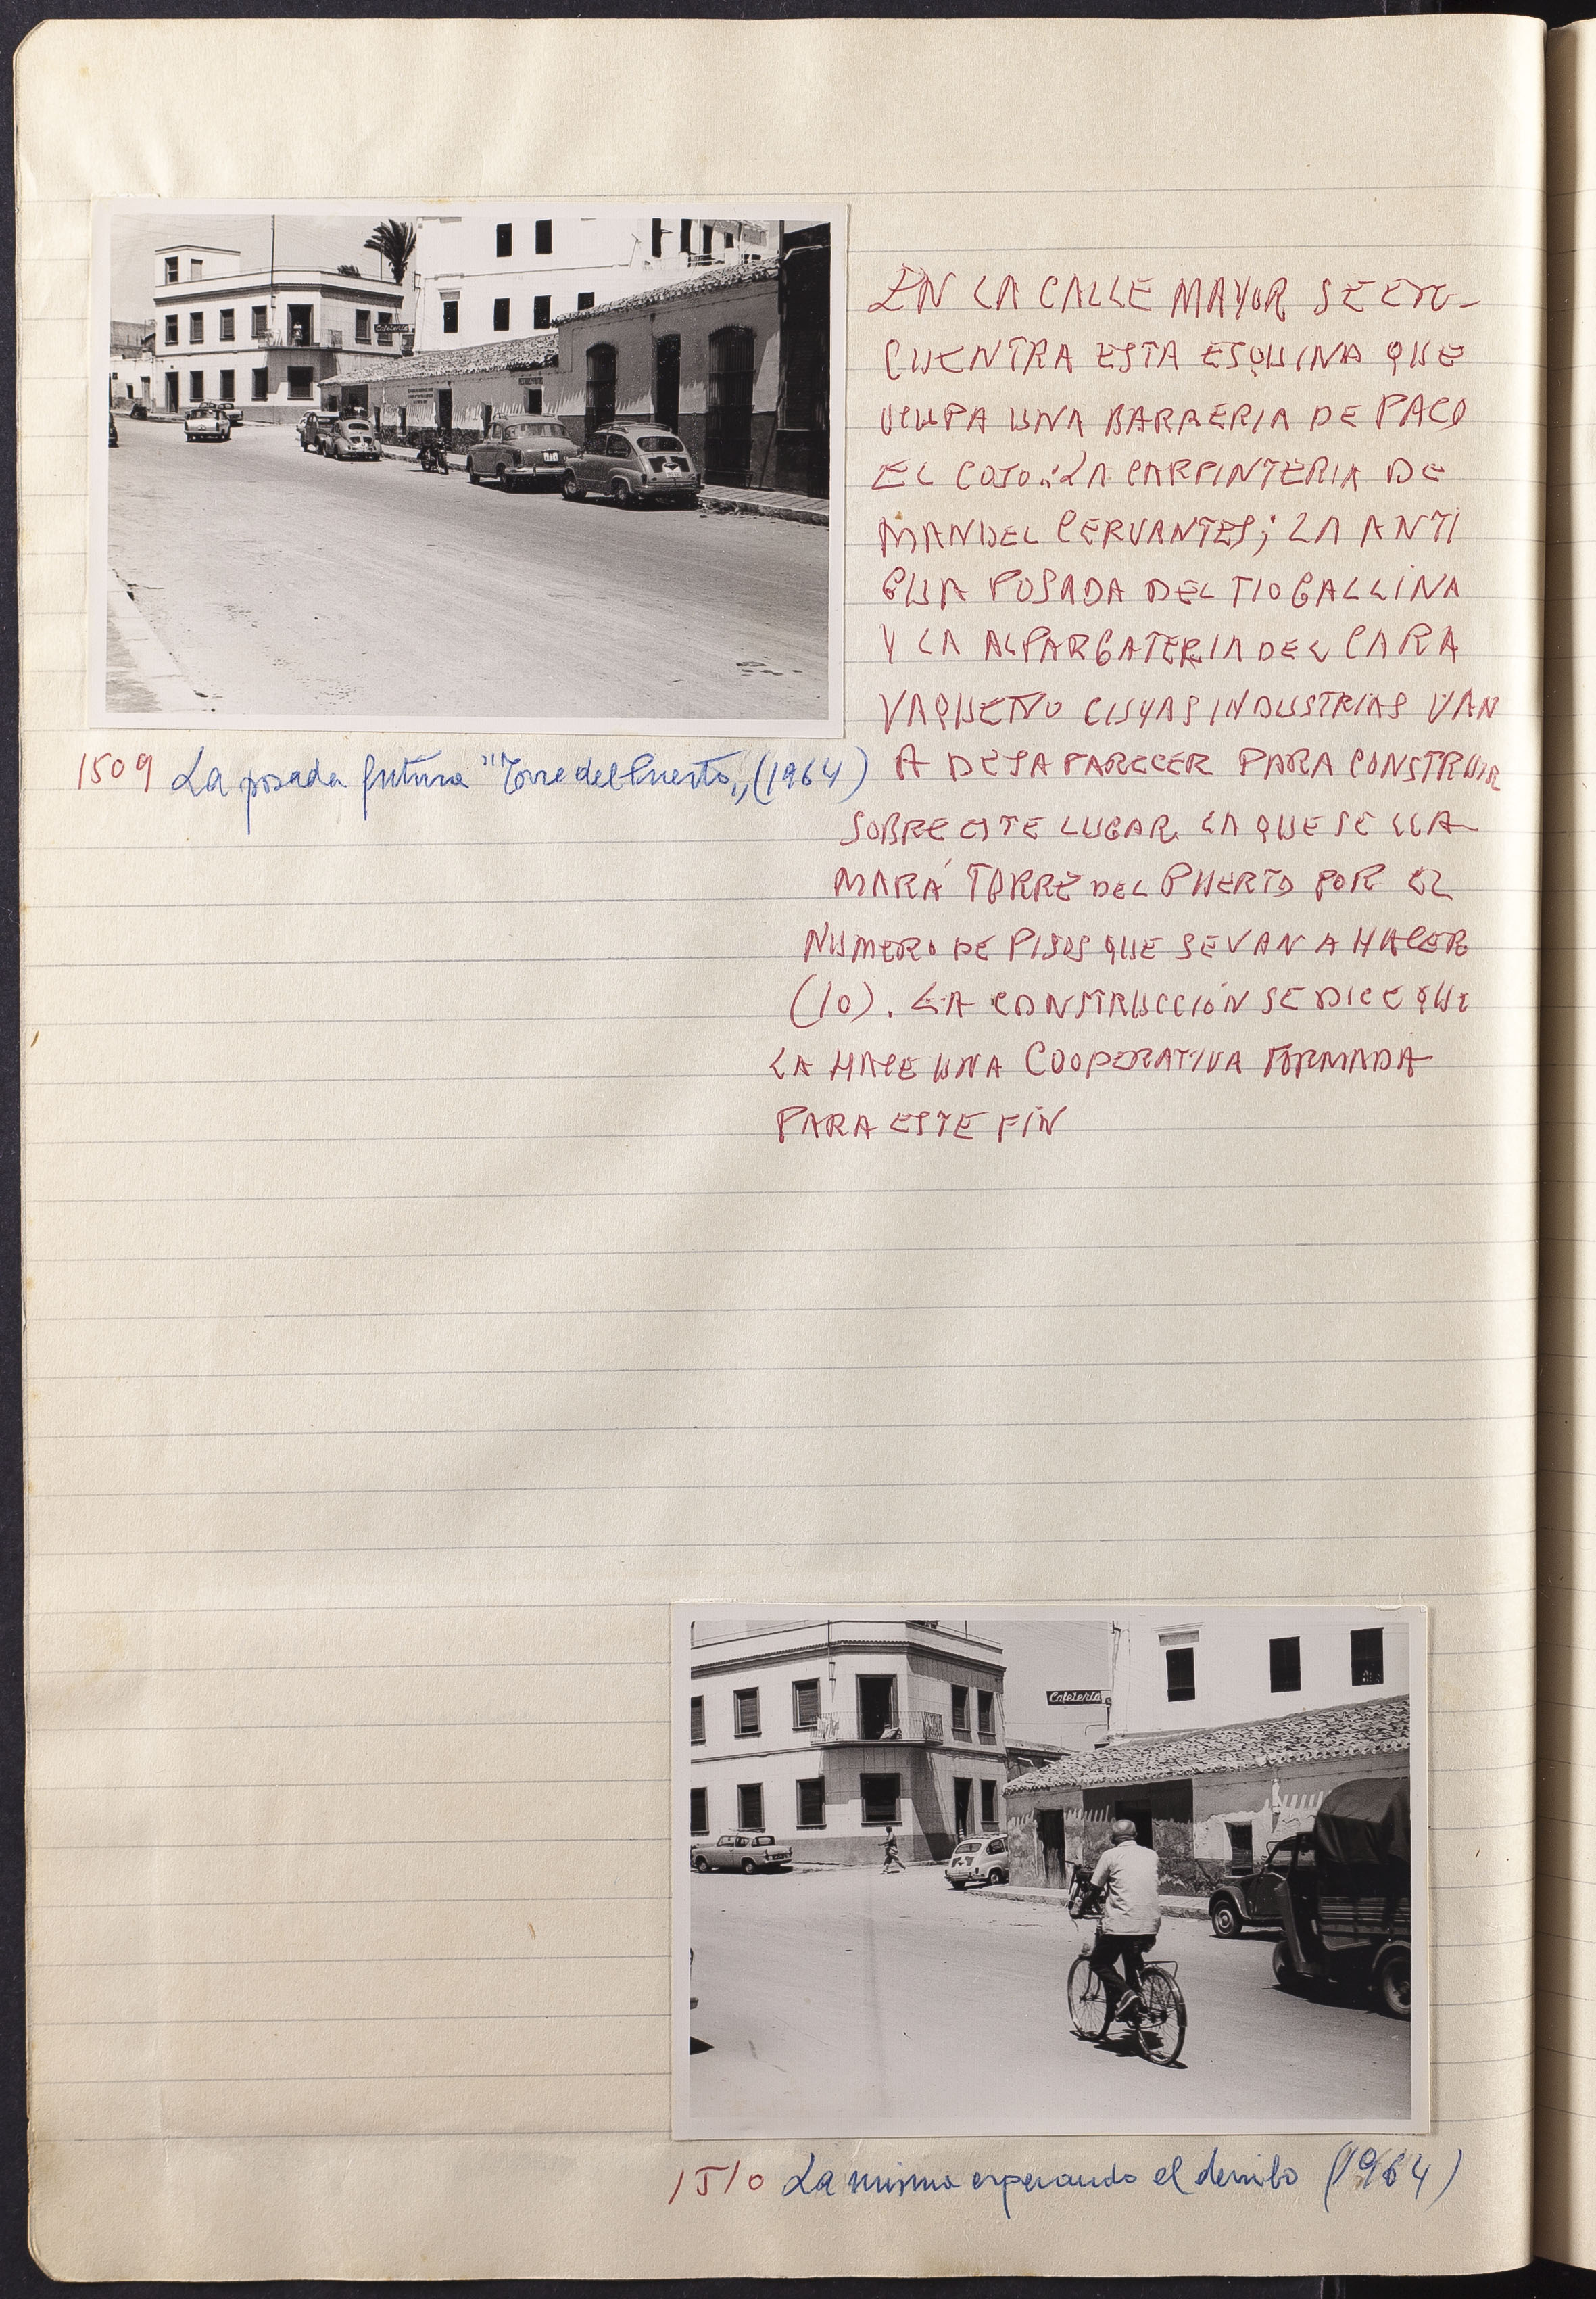 Cafeteria
EN LA CALLE MAYOR SE EN-
CUENTRA ESTA ESQUINA QUE
OCUPA UNA BARRERIA DE PACO
EL COJO; LA CARPINTERIA DE
MANUEL CERVANTES; LA ANTI
GUA POSADA DEL TIO GALLINA
Y LA ALPARGATERIA DEL CARA
VAQUEÑO CUYAS INDUSTRIAS VAN
A DESAPARECER PARA CONSTRUIR
SOBRE ESTE LUGAR LA QUE SE LLA-
MARÁ TORRE DEL PUERTO POR EL
NUMERO DE PISOS QUE SE VAN A HACER
(10). LA CONSTRUCCIÓN SE DICE QUE
LA HACE UNA COOPERATIVA FORMADA
PARA ESTE FIN
1509 La posada futura "Torre del Puerto" (1964)
Cafeteria
1510 La misma esperando el derribo (1964)